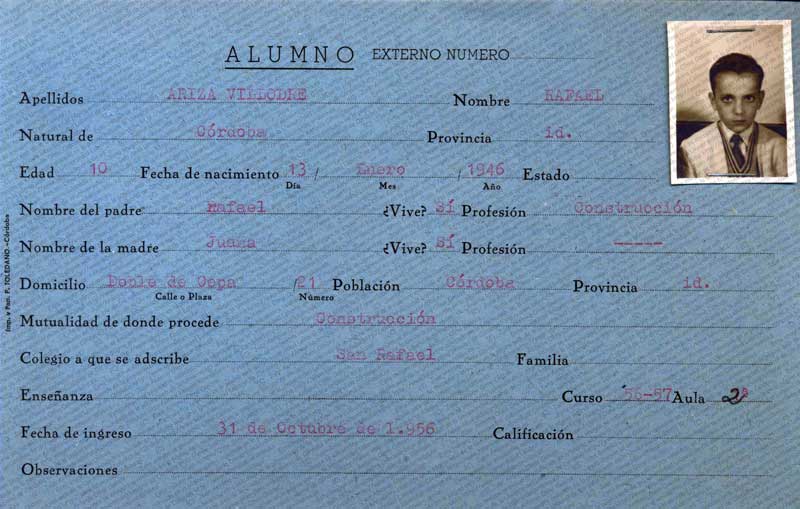 ALUMNO EXTERNO NUMERO
Apellidos ARIZA VILLODRE Nombre RAFAEL
Natural de Córdoba Provincia id.
Edad 10 Fecha de nacimiento 13 / Enero / 1946 Estado
Día Mes Año
Nombre del padre Rafael ¿Vive? Sí Profesión Construcción
Nombre de la madre Juana ¿Vive? Sí Profesión -----
Domicilio Doble de Cepa /21 Población Córdoba Provincia id.
Calle o Plaza Número
Mutualidad de donde procede Construcción
Colegio a que se adscribe San Rafael Familia
Enseñanza Curso 56-57 Aula 2ª
Fecha de ingreso 31 de Octubre de 1.956 Calificación
Observaciones
Imp. y Pap. F. TOLEDANO.-Córdoba